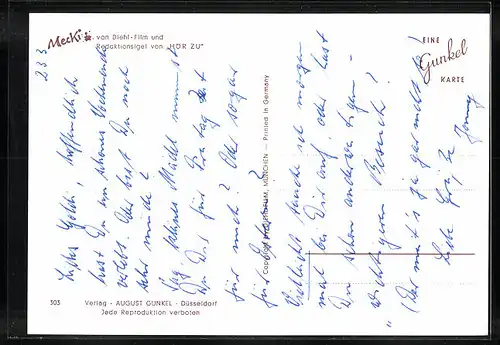 Mecki: von Diehl-Film und
Redaktionsigel von „HÖR ZU"
EINE
Gunkel
KARTE
233
Liebes Goldi, hoffentlich
hast Du ein schönes Wochenende
verlebt. Oder bist Du noch
sehr müde?
Sag schönes Mädel nimmst
Du Dir für Freitag Zeit
für mich? Oder sogar
für
Vielleicht tauche ich morgen
mal bei Dir auf, oder hast
Du schon anderweitigen -
wichtigeren Besuch!
(Der
Liebe Grüße
Copyright MÜNCHEN — Printed in Germany
303
Verlag - AUGUST GUNKEL - Düsseldorf
Jede Reproduktion verboten